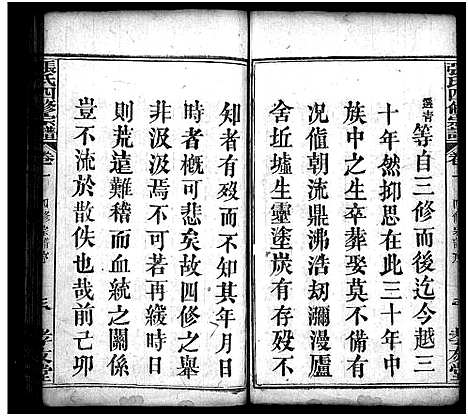 張氏四修宗譜
卷一
四修宗譜序
孝友堂
選青等自三修而後迄今越三
十年然抑思在此三十年中
族中之生卒葬娶莫不備有
况值朝流鼎沸浩劫瀰漫廬
舍坵墟生靈塗炭有存歿不
知者有歿而不知其年月日
時者概可悲矣故四修之舉
非汲汲焉不可若再緩時日
則荒遠難稽而血統之關係
豈不流於散佚也哉前己卯
張氏四修宗譜
卷一
四修宗譜序
孝友堂